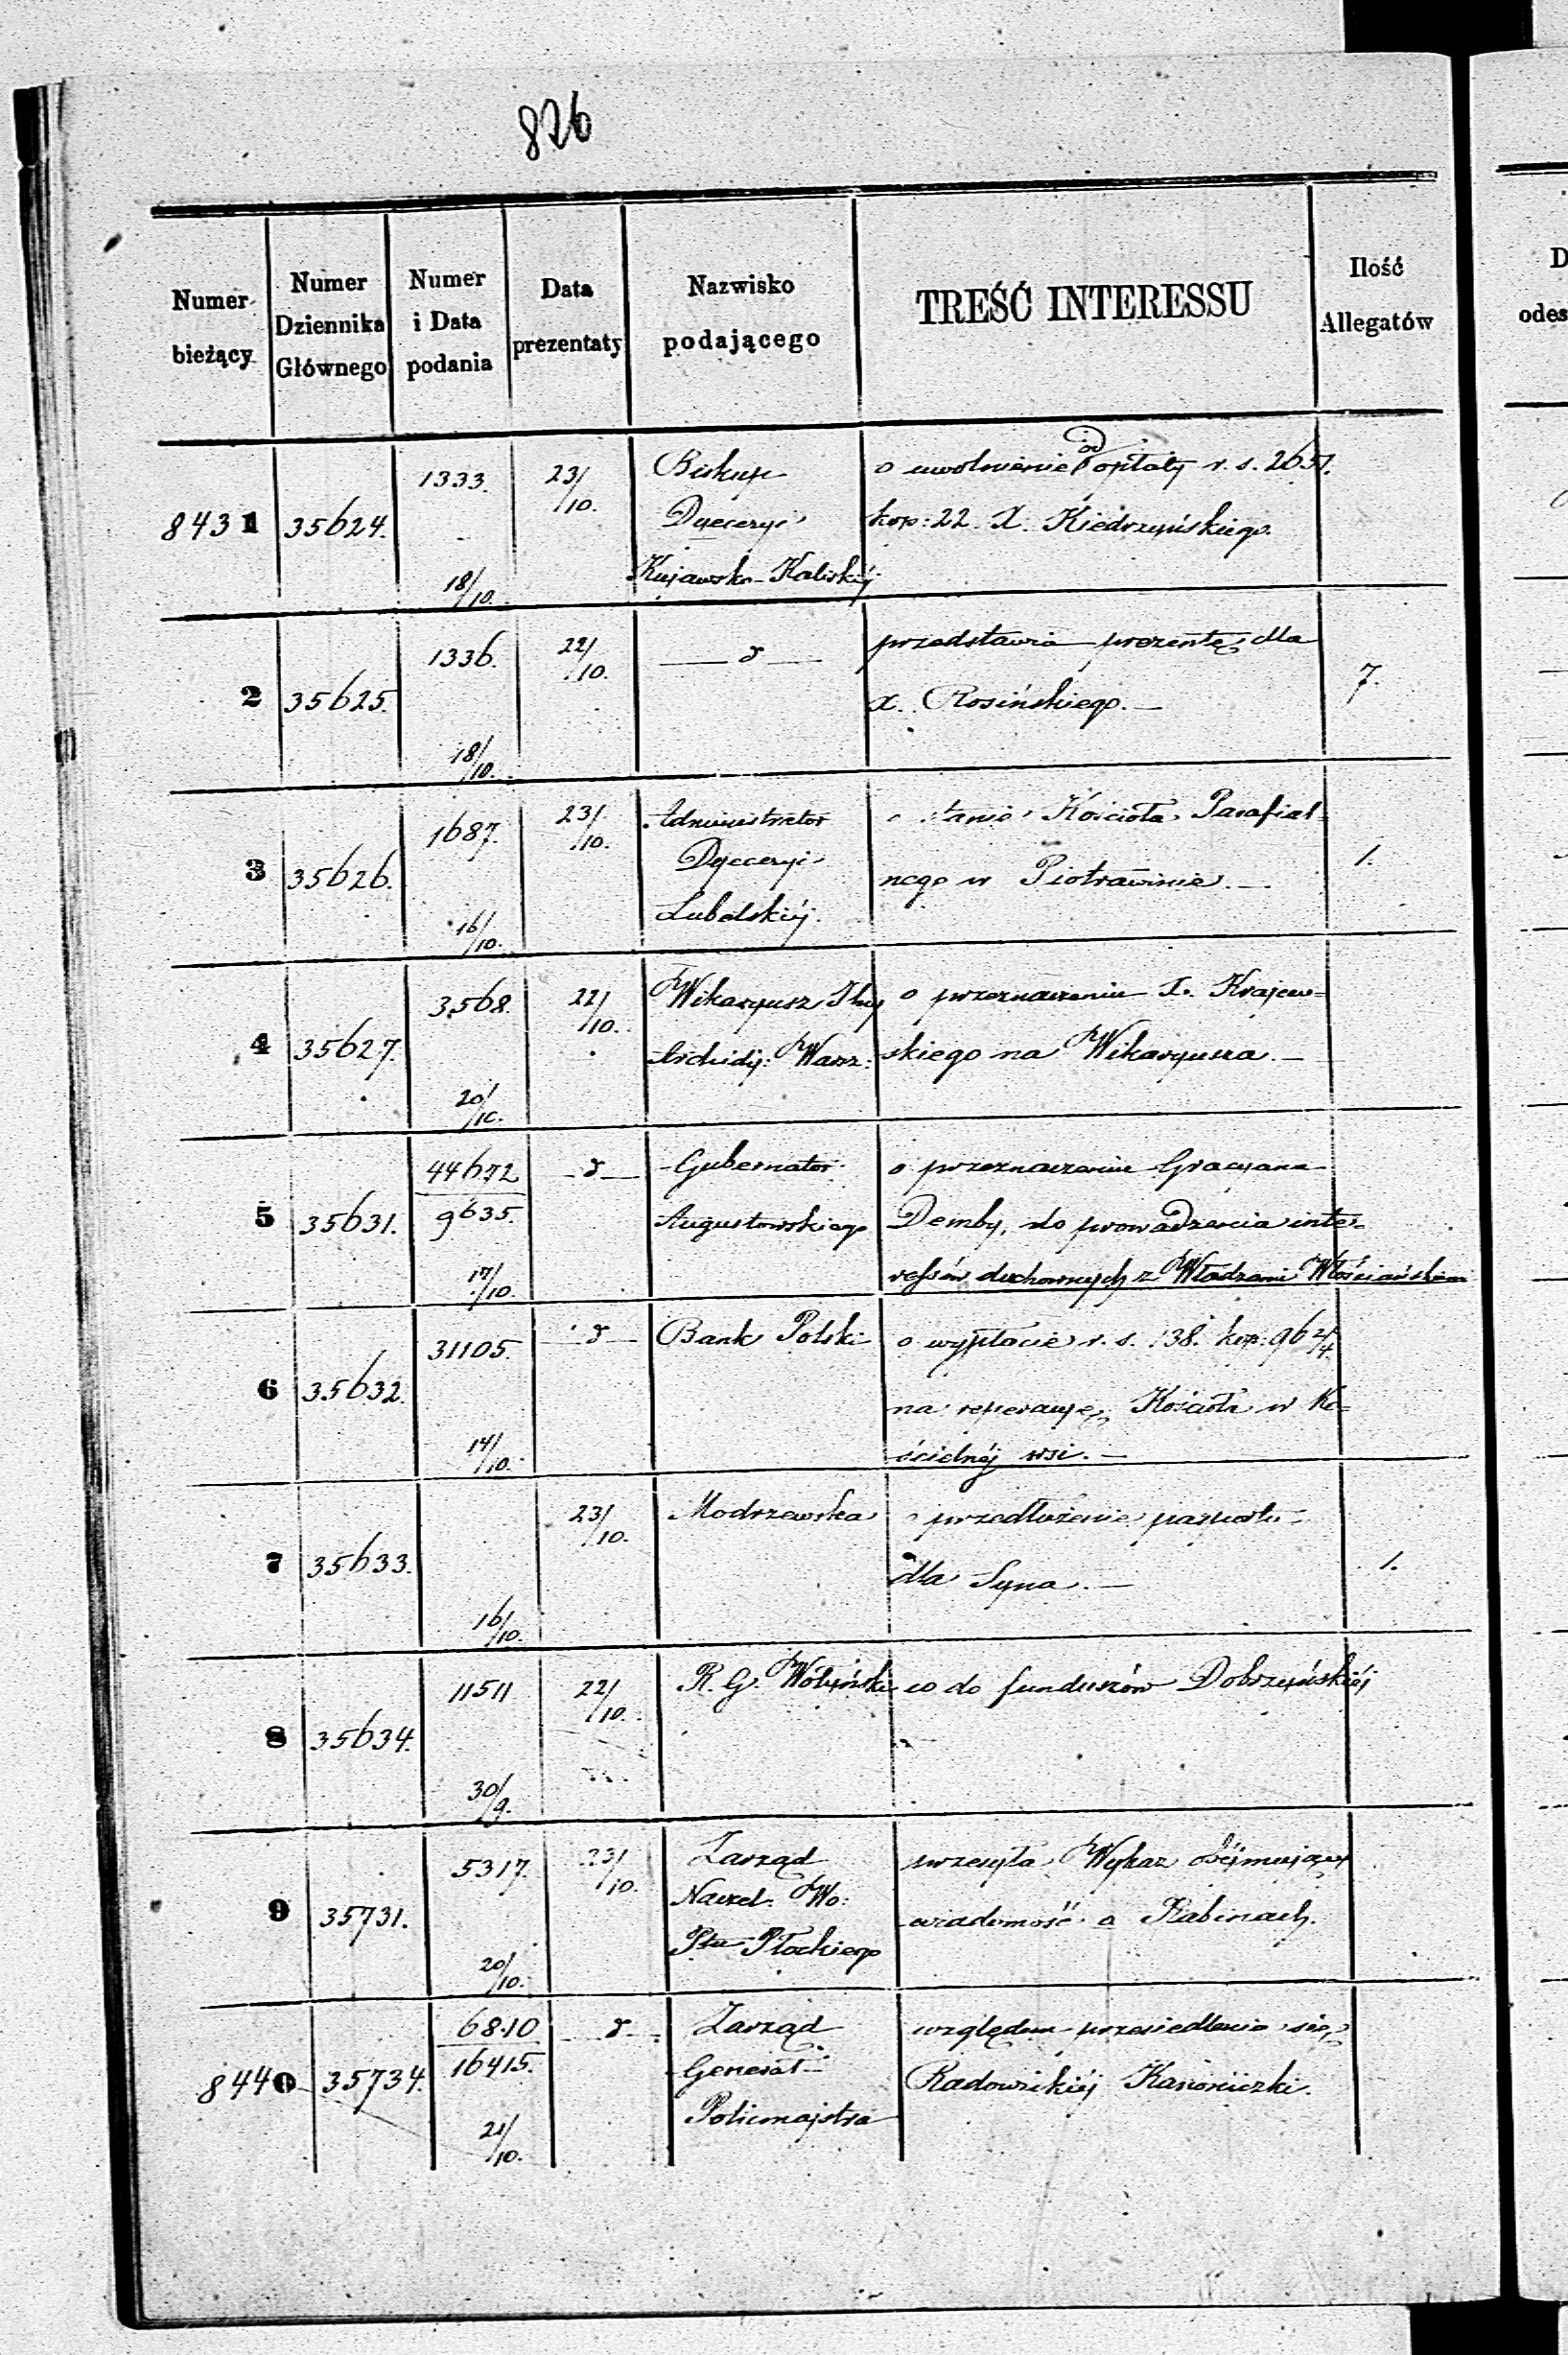 826
Numer bieżący
Numer Dziennika Głównego
Numer i Data podania
Data prezentaty
Nazwisko podającego
TREŚĆ INTERESSU
Ilość Allegatów
8431 35624. 1333. 18/10. 23/10.
Biskup
Dyecezyi
Kujawsko-Kaliskiéj
o uwolnienie od opłaty r. s. 2657.
kop: 22. X. Kiedrzyńskiego.
2 35625. 1336. 18/10. 22/10.
przedstawia prezentę dla
X. Rosińskiego. —
7.
3 35626. 1687. 16/10. 23/10.
Administrator
Dyecezyi
Lubelskiéj.
o stanie Kościoła Parafial-
nego w Piotrawinie. —
1.
4 35627. 3568. 20/10. 22/10.
Wikaryusz
Archidy: Warsz:
o przeznaczeniu X. Krajew-
skiego na Wikaryusza. —
5 35631. 44672 9635. 17/10.
Gubernator
Augustowskiego
o przeznaczeniu Gracyana
Demby, do prowadzenia inte-
ressów duchownych z Władzami Włościańskiemi
6 35632. 31105. 14/10.
Bank Polski
o wypłacie r. s. 138. kop: 96
na reperacyę Kościoła w Ko-
ścielnéj wsi. —
7 35633. 16/10. 23/10.
Modrzewska
o przedłużenie paszportu
dla Syna. —
1.
8 35634. 11511 30/9. 22/10.
R. G. Wołyński
co do funduszów Dobrzyńskiéj
9 35731. 5317. 20/10. 23/10.
Zarząd
Naczel: Wo:
Płockiego
przesyła Wykaz obejmujący
wiadomość o Rabinach.
8440 35734. 6810 16415. 21/10.
Zarząd
Generał-
Policmajstra
względem przesiedlenia się
Kanoniczki.
D
odes